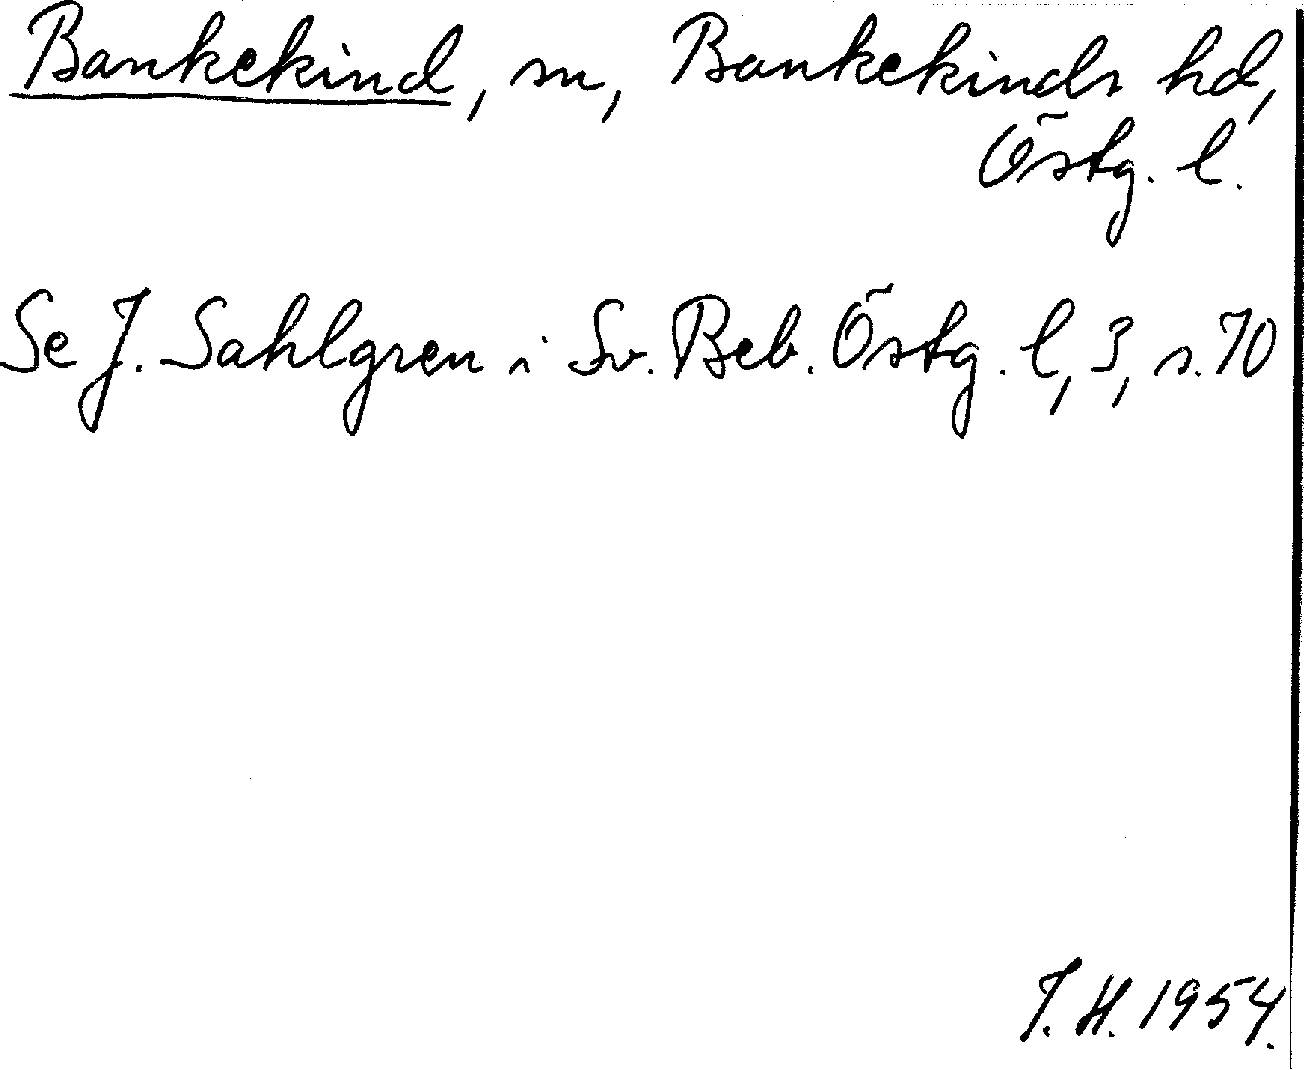 Bankekind, sn, Bankekinds hd,
Östg. l.
Se J. Sahlgren i Sv. Beb. Östg. l, 3, s. 70
J. H. 1954.